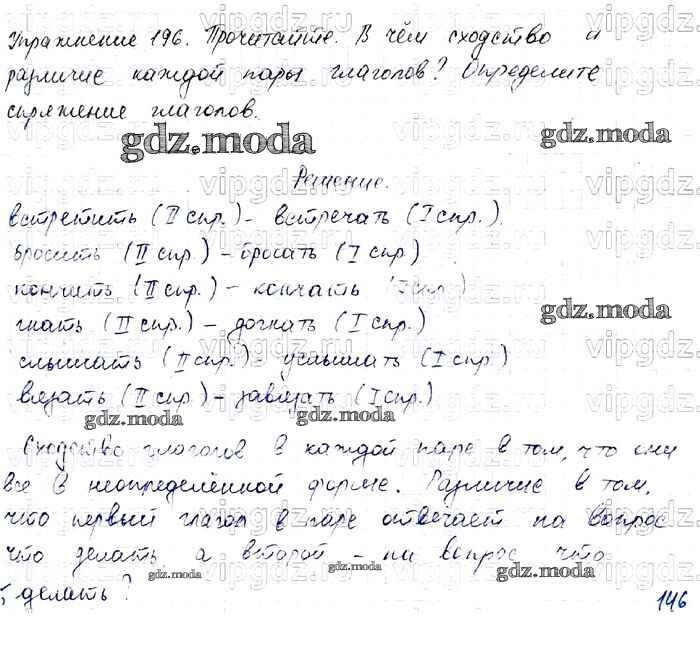 Упражнение 196. Прочитайте. В чём сходство и
различие каждой пары глаголов? Определите
спряжение глаголов.
gdz.moda
gdz.moda
Решение.
встретить (II спр.) - встречать (I спр.).
бросить (II спр.) - бросать (I спр.)
кончить (II спр.) - кончать (I спр.)
gdz.moda
гнать (II спр.) - догнать (I спр.)
слышать (II спр.) - услышать (I спр.)
вязать (II спр.) - завязать (I спр.)
gdz.moda gdz.moda
Сходство глаголов в каждой паре в том, что они
все в неопределённой форме. Различие в том,
что первый глагол в паре отвечает на вопрос
что делать а второй - на вопрос что
gdz.moda gdz.moda
делать?
146